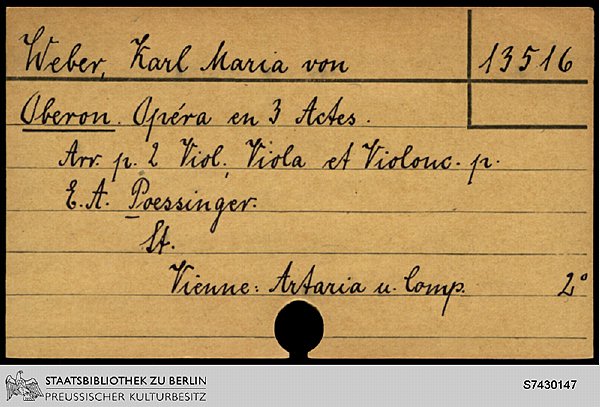 Weber, Karl Maria von
13516
Oberon. Opéra en 3 Actes.
Arr. p. 2 Viol., Viola et Violonc. p.
E. A. Poessinger.
St.
Vienne: Artaria u. Comp. 2°
STAATSBIBLIOTHEK ZU BERLIN
PREUSSISCHER KULTURBESITZ
S7430147